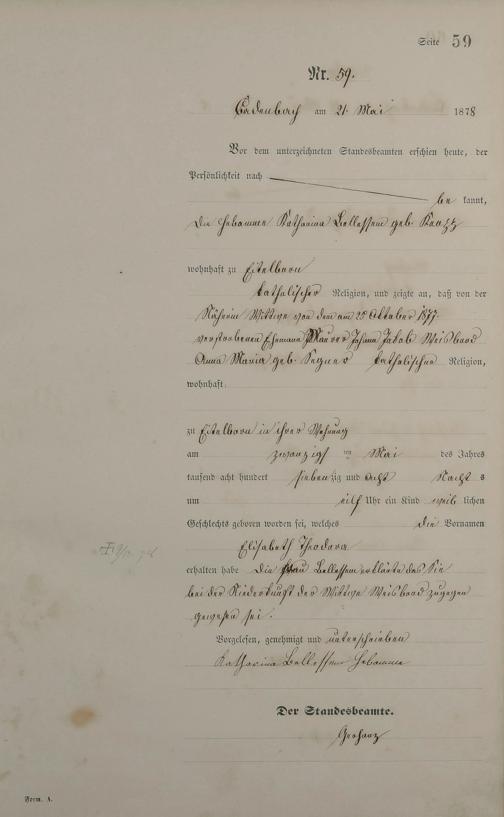 Seite 59
Nr. 59.
Cadenbach am 21. Mai 1878
Vor dem unterzeichneten Standesbeamten erschien heute, der
Persönlichkeit nach
be kannt,
die Hebamme Katharina Bellessem geb.
wohnhaft zu Eitelborn
katholischer Religion, und zeigte an, daß von der
Näherin Wittwe von dem am 28 Oktober 1877
verstorbenen Ehemann Maurer Johann Jakob Weisbrod
Anna Maria geb. katholischer Religion,
wohnhaft
zu Eitelborn in ihrer Wohnung
am zwanzigsten Mai des Jahres
tausend acht hundert siebenzig und acht Nachts
um eilf Uhr ein Kind weiblichen
Geschlechts geboren worden sei, welches die Vornamen
Elisabeth Theodora
erhalten habe die Frau Bellessem erklärte das Sie
bei der Niederkunft der Wittwe Weisbrod zugegen
gewesen sei.
Vorgelesen, genehmigt und unterschrieben
Katharina Bellessem Hebamme
Der Standesbeamte.
Form. A.